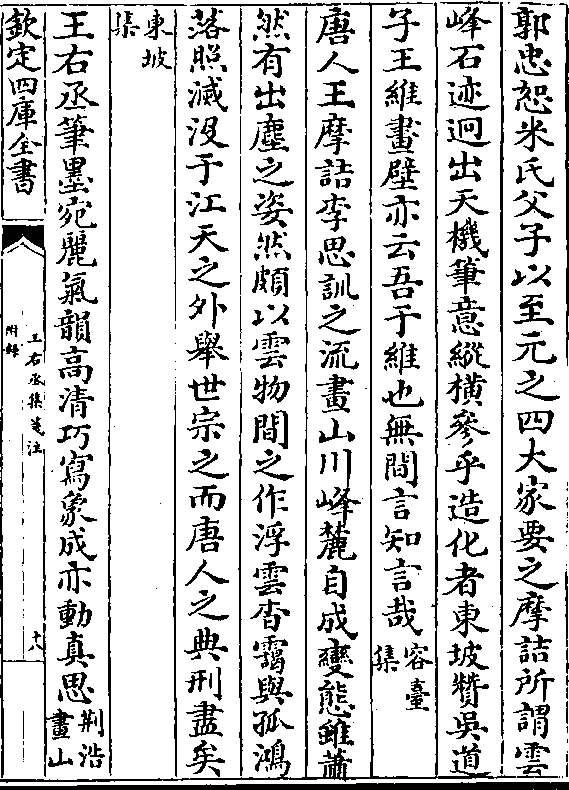 郭忠恕米氏父子以至元之四大家要之摩詰所謂雲
峰石迹迥出天機筆意縱橫參乎造化者東坡贊吳道
子王維畫壁亦云吾于維也無間言知言哉容臺集
唐人王摩詰李思訓之流畫山川峰麓自成變態雖蕭
然有出塵之姿然頗以雲物間之作浮雲杳靄與孤鴻
落照滅沒于江天之外舉世宗之而唐人之典刑盡矣
東坡集
王右丞筆墨宛麗氣韻高清巧寫象成亦動真思荆浩畫山
欽定四庫全書
王右丞集箋注
附録
十八